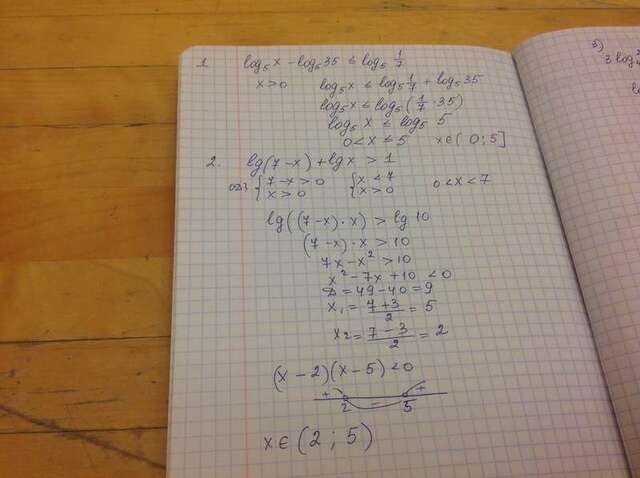 1. log₅x - log₅35 ≤ log₅ 1/7
x>0 log₅x ≤ log₅ 1/7 + log₅35
log₅x ≤ log₅(1/7 · 35)
log₅ x ≤ log₅ 5
0<x≤5 x∈(0;5]
2. lg(7-x)+lgx > 1
ОДЗ { 7-x>0 { x<7 0<x<7
x>0 x>0
lg((7-x)·x) > lg 10
(7-x)·x>10
7x-x²>10
x²-7x+10<0
D=49-40=9
x₁= (7+3)/2 = 5
x₂= (7-3)/2 = 2
(x-2)(x-5)<0
+ - +
2 5
x∈(2;5)
3)
3log²